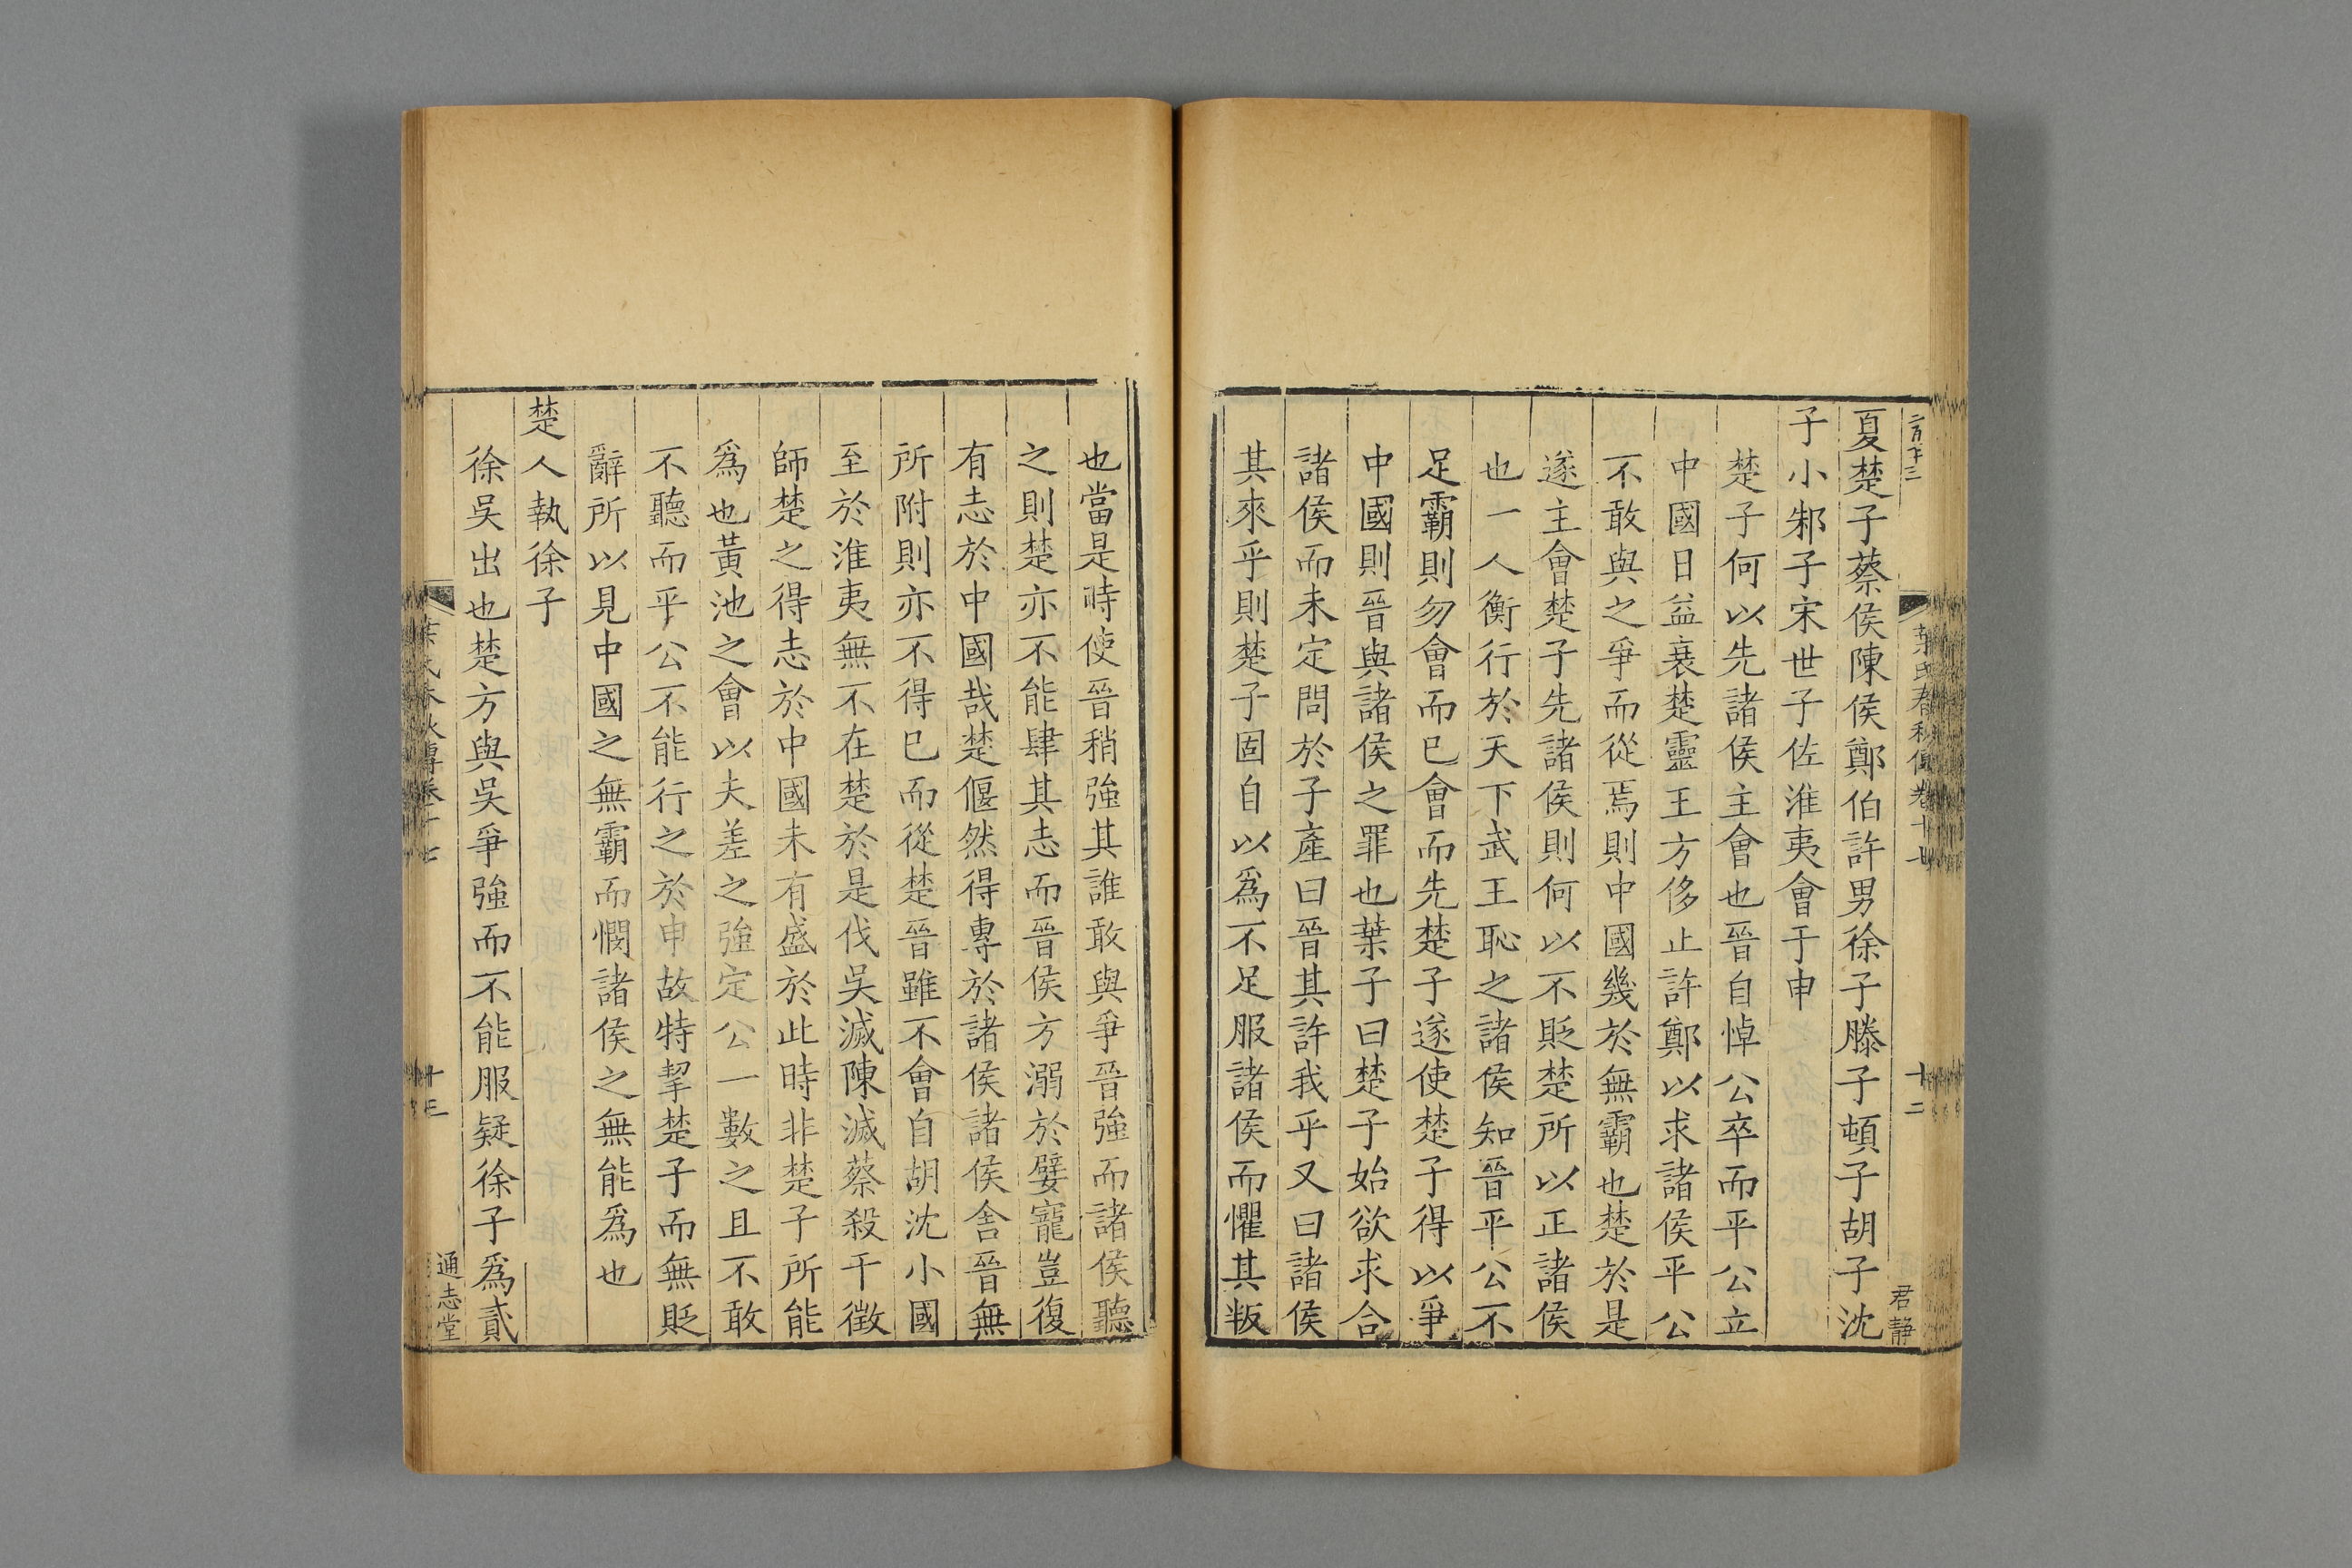 夏楚子蔡侯陳侯鄭伯許男徐子滕子頓子胡子沈
子小邾子宋世子佐淮夷會于申
楚子何以先諸侯主會也晉自悼公卒而平公立
中國日益衰楚靈王方侈止許鄭以求諸侯平公
不敢與之爭而從焉則中國幾於無霸也楚於是
遂主會楚子先諸侯則何以不貶楚所以正諸侯
也一人衡行於天下武王恥之諸侯知晉平公不
足霸則勿會而已會而先楚子遂使楚子得以爭
中國則晉與諸侯之罪也葉子曰楚子始欲求合
諸侯而未定問於子產曰晉其許我乎又曰諸侯
其來乎則楚子固自以爲不足服諸侯而懼其叛
葉氏春秋傳卷十七
十二
君静
也當是時使晉稍強其誰敢與爭晉強而諸侯聽
之則楚亦不能肆其志而晉侯方溺於嬖寵豈復
有志於中國哉楚偃然得專於諸侯諸侯舍晉無
所附則亦不得已而從楚晉雖不會自胡沈小國
至於淮夷無不在楚於是伐吳滅陳滅蔡殺干徵
師楚之得志於中國未有盛於此時非楚子所能
爲也黃池之會以夫差之強定公一數之且不敢
不聽而平公不能行之於申故特挈楚子而無貶
辭所以見中國之無霸而憫諸侯之無能爲也
楚人執徐子
徐吳出也楚方與吳爭強而不能服疑徐子爲貳
葉氏春秋傳卷十七
十三
通志堂